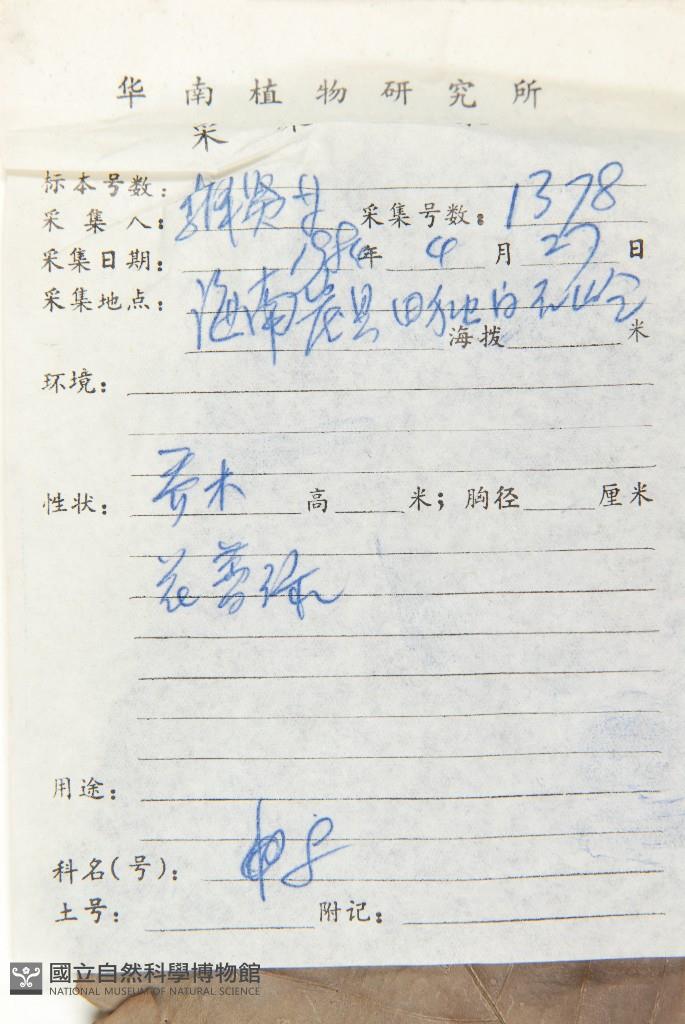 华南植物研究所
采
标本号数：
采集人： 采集号数：1378
采集日期： 年4月27日
采集地点：海南崖县田独白石岭
海拨 米
环境：
性状：乔木 高 米；胸径 厘米
花蕾绿
用途：
科名(号)：
土号： 附记：
國立自然科學博物館
NATIONAL MUSEUM OF NATURAL SCIENCE